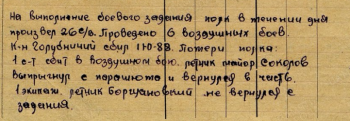 На выполнение боевого задания полк в течении дня
произвел 26 с/в. Проведено 6 воздушных боев.
К-н Голубничий сбил 1 Ю-88. Потери полка:
1 с-т сбит в воздушном бою. летчик майор Соколов
Выпрыгнул с парашюта и вернулся в часть.
1 экипаж. летчик Борщановский не вернулся с
задания.